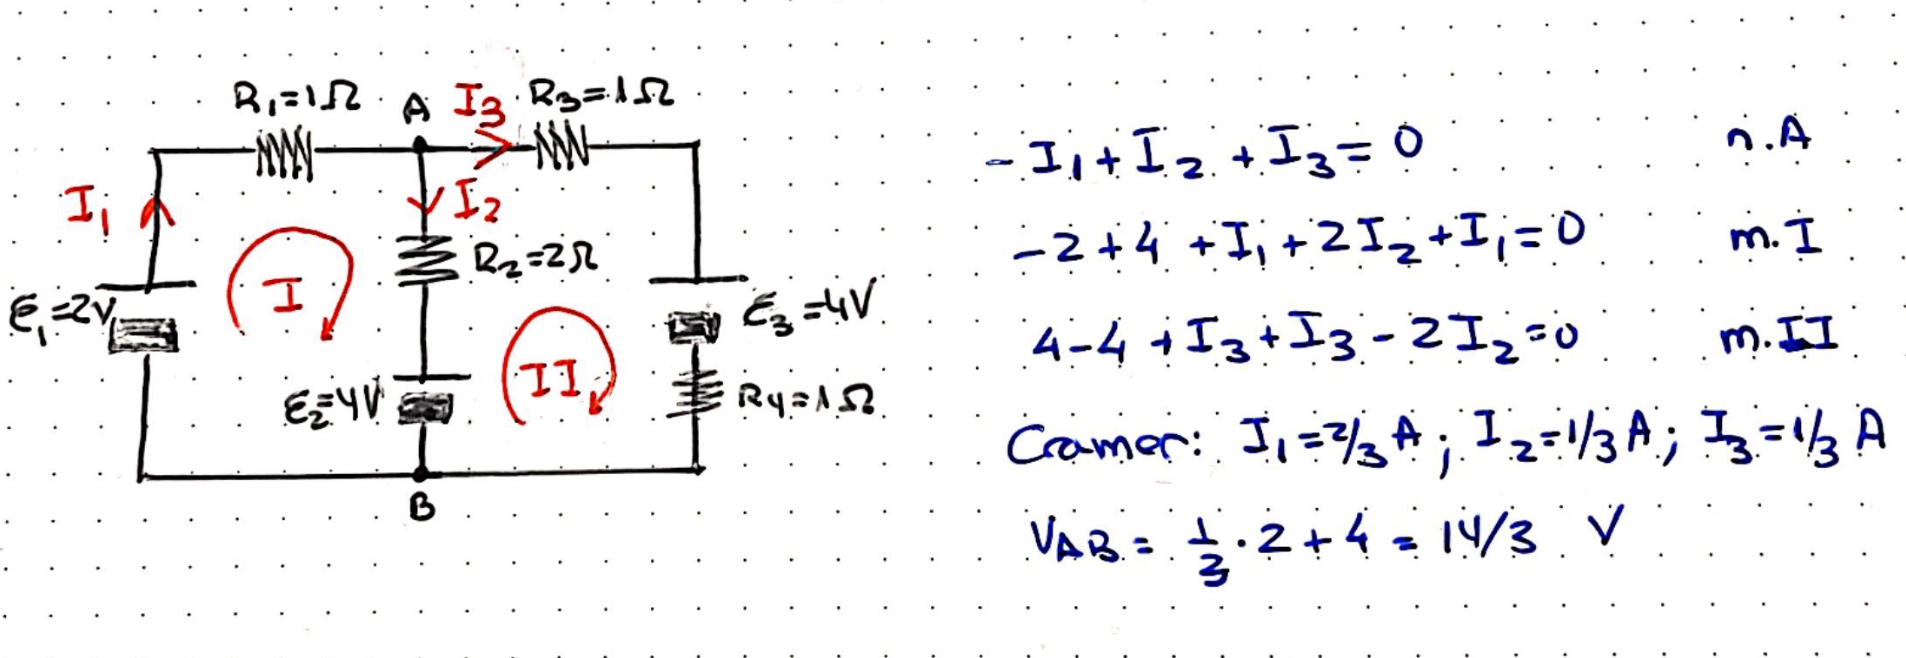 R₁=1Ω A I₃ R₃=1Ω
I₁ I₂
R₂=2Ω
I
ε₁=2V ε₃=4V
II
ε₂=4V R₄=1Ω
B
-I₁+I₂+I₃=0 n.A
-2+4+I₁+2I₂+I₁=0 m.I
4-4+I₃+I₃-2I₂=0 m.II
Cramer: I₁=2/3 A; I₂=1/3 A; I₃=1/3 A
V_AB = 1/3 · 2 + 4 = 14/3 V